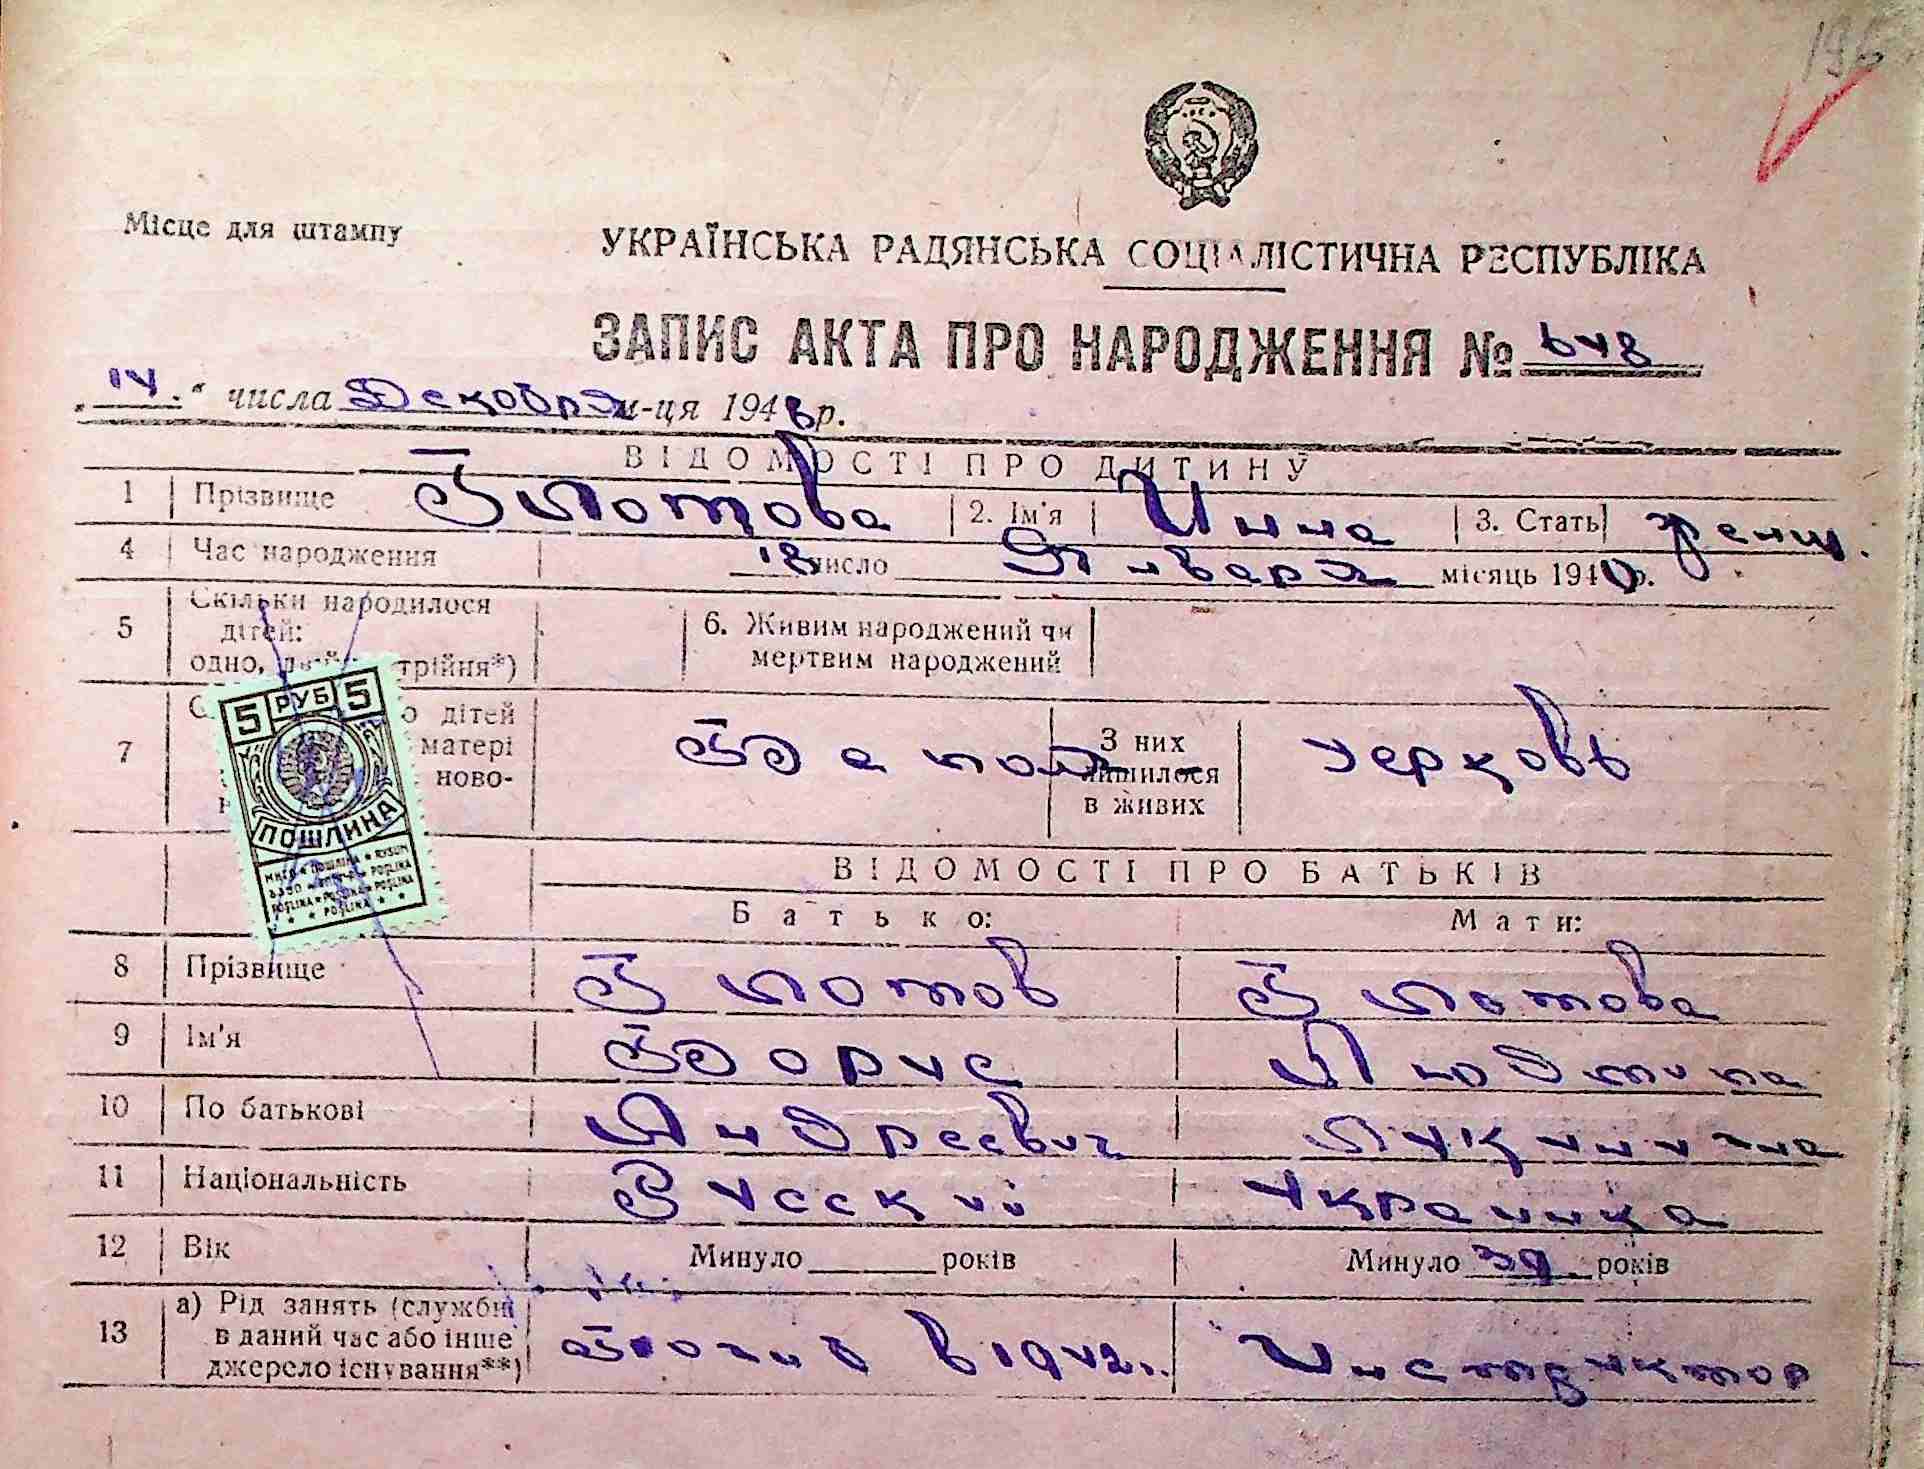 196
Місце для штампу
УКРАЇНСЬКА РАДЯНСЬКА СОЦІАЛІСТИЧНА РЕСПУБЛІКА
ЗАПИС АКТА ПРО НАРОДЖЕННЯ № 648
„14.“ числа Декабря м-ця 1946 р.
ВІДОМОСТІ ПРО ДИТИНУ
1 Прізвище Глотова 2. Ім'я Инна 3. Стать женш.
4 Час народження 18 число Января місяць 1940 р.
5 Скільки народилося дітей: одно, двійня, трійня*)
6. Живим народжений чи мертвим народжений
7 дітей матері ново-
З них лишилося в живих
церковь
5 РУБ 5
ПОШЛИНА
ВІДОМОСТІ ПРО БАТЬКІВ
Батько: Мати:
8 Прізвище Глотов Глотова
9 Ім'я Борис Людмила
10 По батькові Андреевич Лукинична
11 Національність Русский Украинка
12 Вік Минуло років Минуло 39 років
13 а) Рід занять (службі в даний час або інше джерело існування**)
Погиб в 1942г. Инструктор